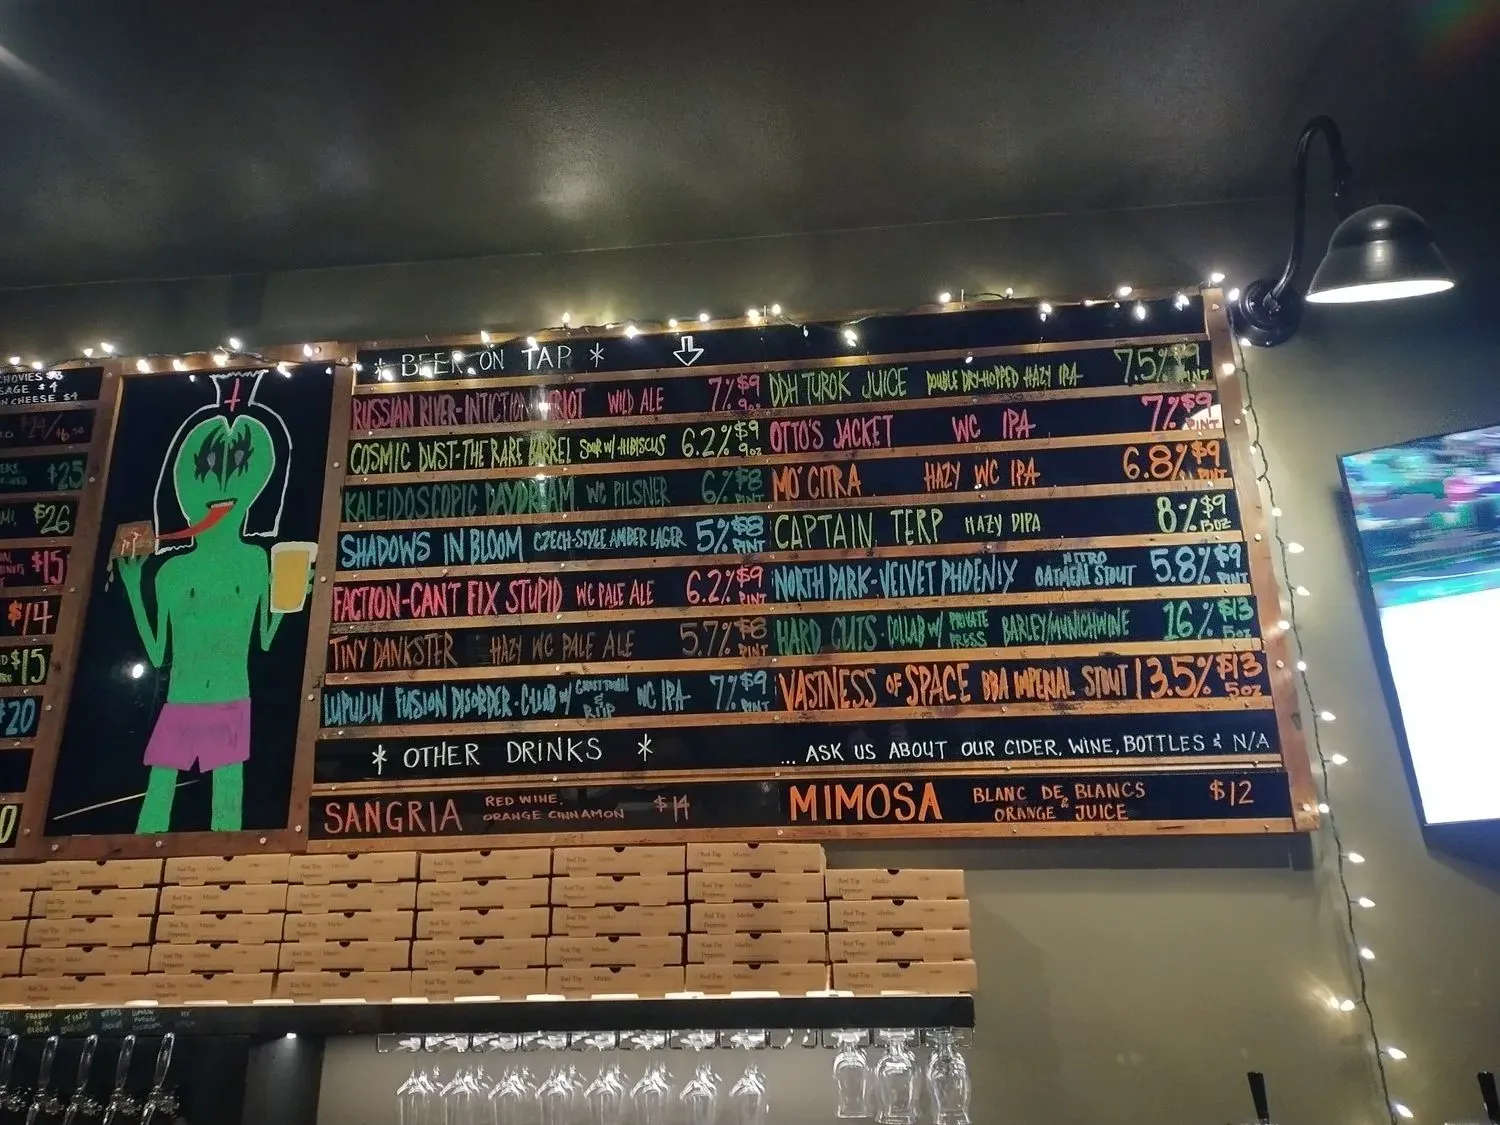 * BEER ON TAP *
RUSSIAN RIVER-INTICTION RIOT WILD ALE 7% $9 9oz
COSMIC DUST-THE RARE BARREL SOUR W/ HIBISCUS 6.2% $9 9oz
KALEIDOSCOPIC DAYDREAM WC PILSNER 6% $8 PINT
SHADOWS IN BLOOM CZECH-STYLE AMBER LAGER 5% $8 PINT
FACTION-CAN'T FIX STUPID WC PALE ALE 6.2% $9 PINT
TINY DANKSTER HAZY WC PALE ALE 5.7% $8 PINT
LUPULIN FUSION DISORDER-COLLAB W/ GHOST TOWN & RIIP WC IPA 7% $9 PINT
DDH TUROK JUICE DOUBLE DRY-HOPPED HAZY IPA 7.5% $9 PINT
OTTO'S JACKET WC IPA 7% $9 PINT
MO' CITRA HAZY WC IPA 6.8% $9 PINT
CAPTAIN TERP HAZY DIPA 8% $9 13oz
NORTH PARK-VELVET PHOENIX NITRO OATMEAL STOUT 5.8% $9 PINT
HARD CUTS-COLLAB W/ PRIVATE PRESS BARLEY/MUNICHWINE 16% $13 5oz
VASTNESS OF SPACE BBA IMPERIAL STOUT 13.5% $13 5oz
* OTHER DRINKS *
... ASK US ABOUT OUR CIDER, WINE, BOTTLES & N/A
SANGRIA RED WINE, ORANGE CINNAMON $14
MIMOSA BLANC DE BLANCS & ORANGE JUICE $12
$4
CHEESE $4
$25
$26
$15
$14
$15
$20